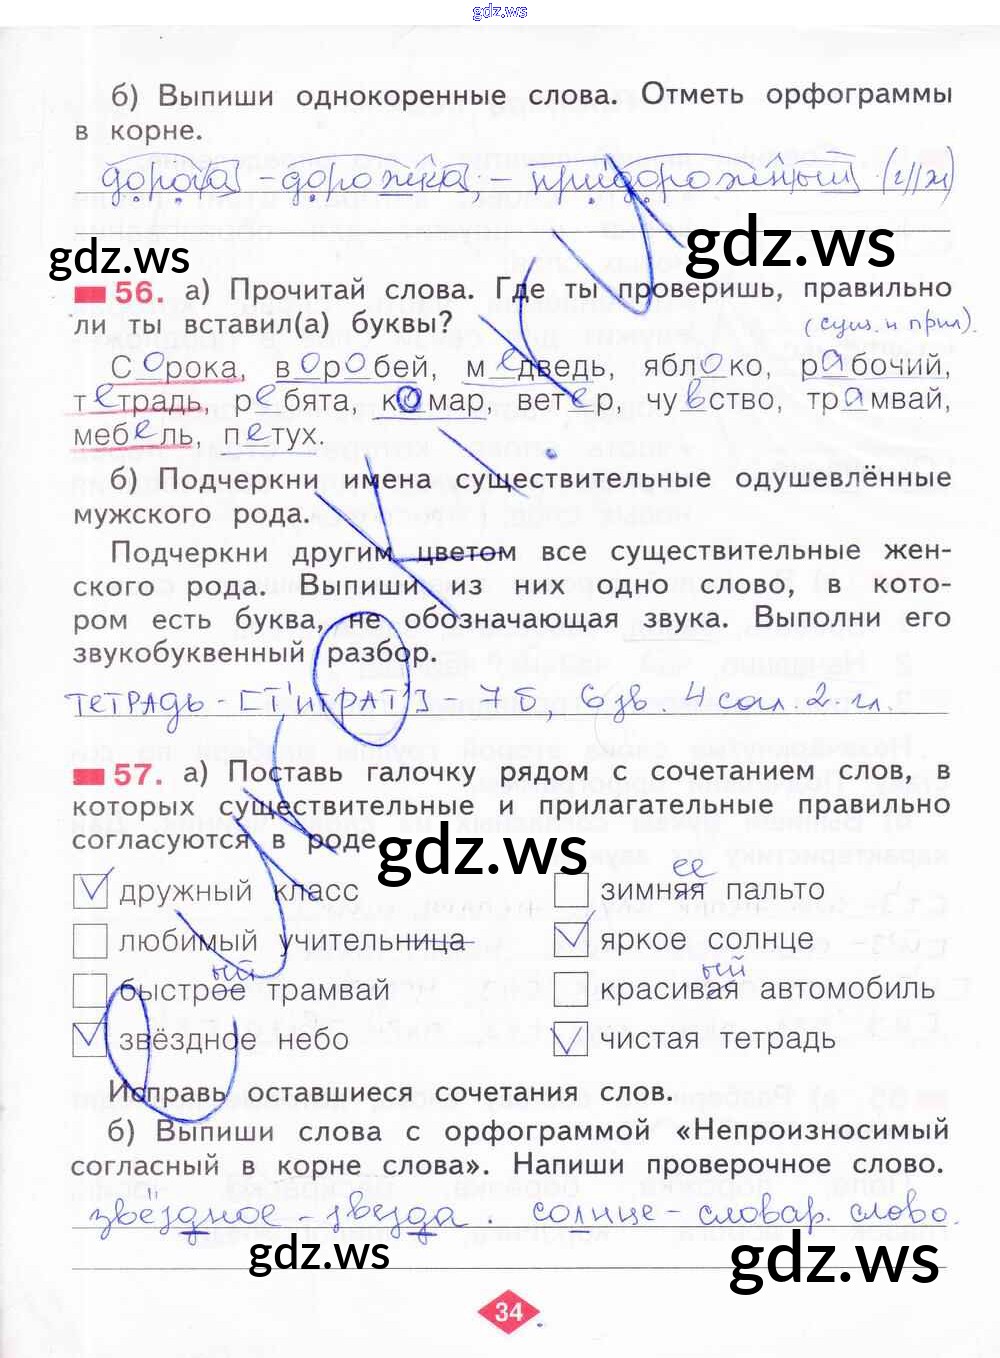 gdz.ws
б) Выпиши однокоренные слова. Отметь орфограммы
в корне.
дорога - дорожка - придорожный (г//ж)
gdz.ws
gdz.ws
56. а) Прочитай слова. Где ты проверишь, правильно
ли ты вставил(а) буквы?
(сущ. и прил).
Сорока, воробей, медведь, яблоко, рабочий,
тетрадь, ребята, комар, ветер, чувство, трамвай,
мебель, петух.
б) Подчеркни имена существительные одушевлённые
мужского рода.
Подчеркни другим цветом все существительные жен-
ского рода. Выпиши из них одно слово, в кото-
ром есть буква, не обозначающая звука. Выполни его
звукобуквенный разбор.
тетрадь - [т'итрат'] - 7 б, 6 зв. 4 согл 2 гл.
57. а) Поставь галочку рядом с сочетанием слов, в
которых существительные и прилагательные правильно
согласуются в роде.
gdz.ws
ее
дружный класс зимняя пальто
любимый учительница яркое солнце
ый ый
быстрое трамвай красивая автомобиль
звёздное небо чистая тетрадь
Исправь оставшиеся сочетания слов.
б) Выпиши слова с орфограммой «Непроизносимый
согласный в корне слова». Напиши проверочное слово.
звёздное - звезда. солнце - словар. слово.
gdz.ws
gdz.ws
34